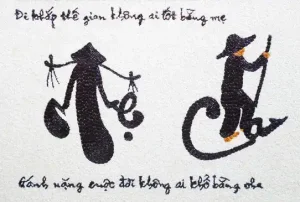 Đi khắp thế gian không ai tốt bằng mẹ
Mẹ
Cha
Gánh nặng cuộc đời không ai khổ bằng cha